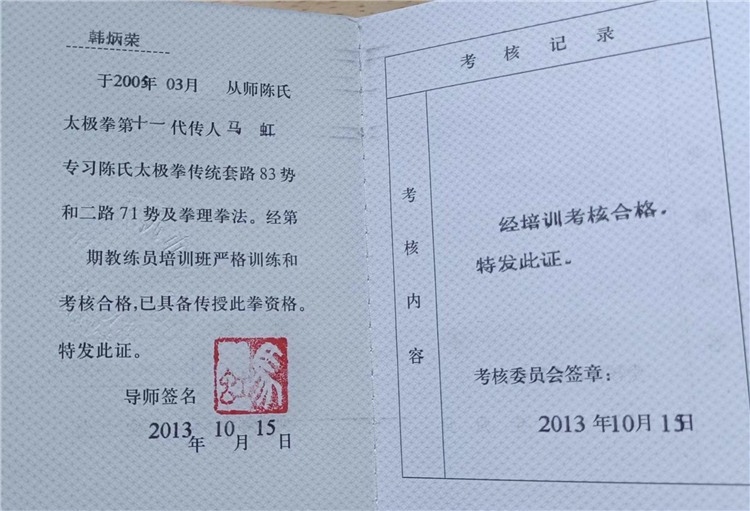 韩炳荣
于2005年 03月 从师陈氏
太极拳第十一代传人马 虹
专习陈氏太极拳传统套路83势
和二路71势及拳理拳法。经第
期教练员培训班严格训练和
考核合格,已具备传授此拳资格。
特发此证。
导师签名
2013年 10月 15日
考核记录
考核内容
经培训考核合格.
特发此证。
考核委员会签章:
2013年10月15日